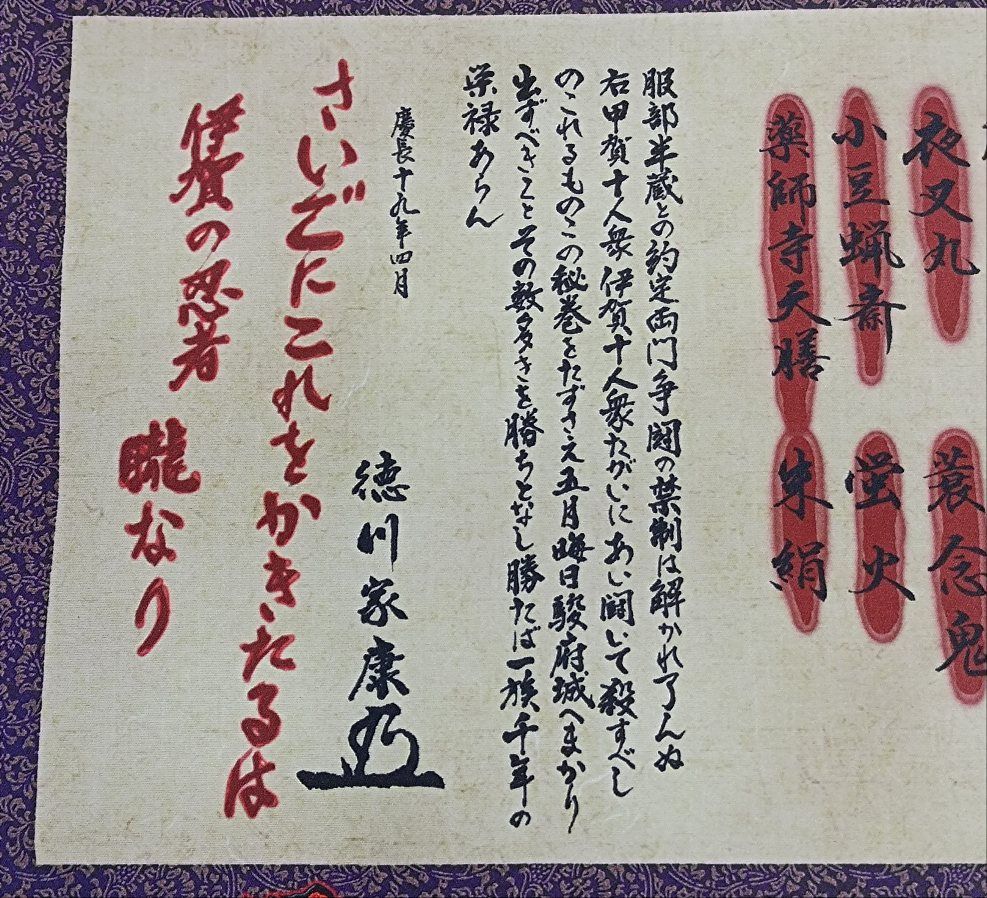 夜叉丸
蓑念鬼
小豆蝋斎
蛍火
薬師寺天膳
朱絹
服部半蔵との約定両門争闘の禁制は解かれ了んぬ
右甲賀十人衆伊賀十人衆たがいにあい闘いて殺すべし
のこれるものこの秘巻をたずさえ五月晦日駿府城へまかり
出ずべきことその数多きを勝ちとなし勝たば一族千年の
栄禄あらん
慶長十九年四月
徳川家康
さいごにこれをかきたるは
伊賀の忍者 朧なり